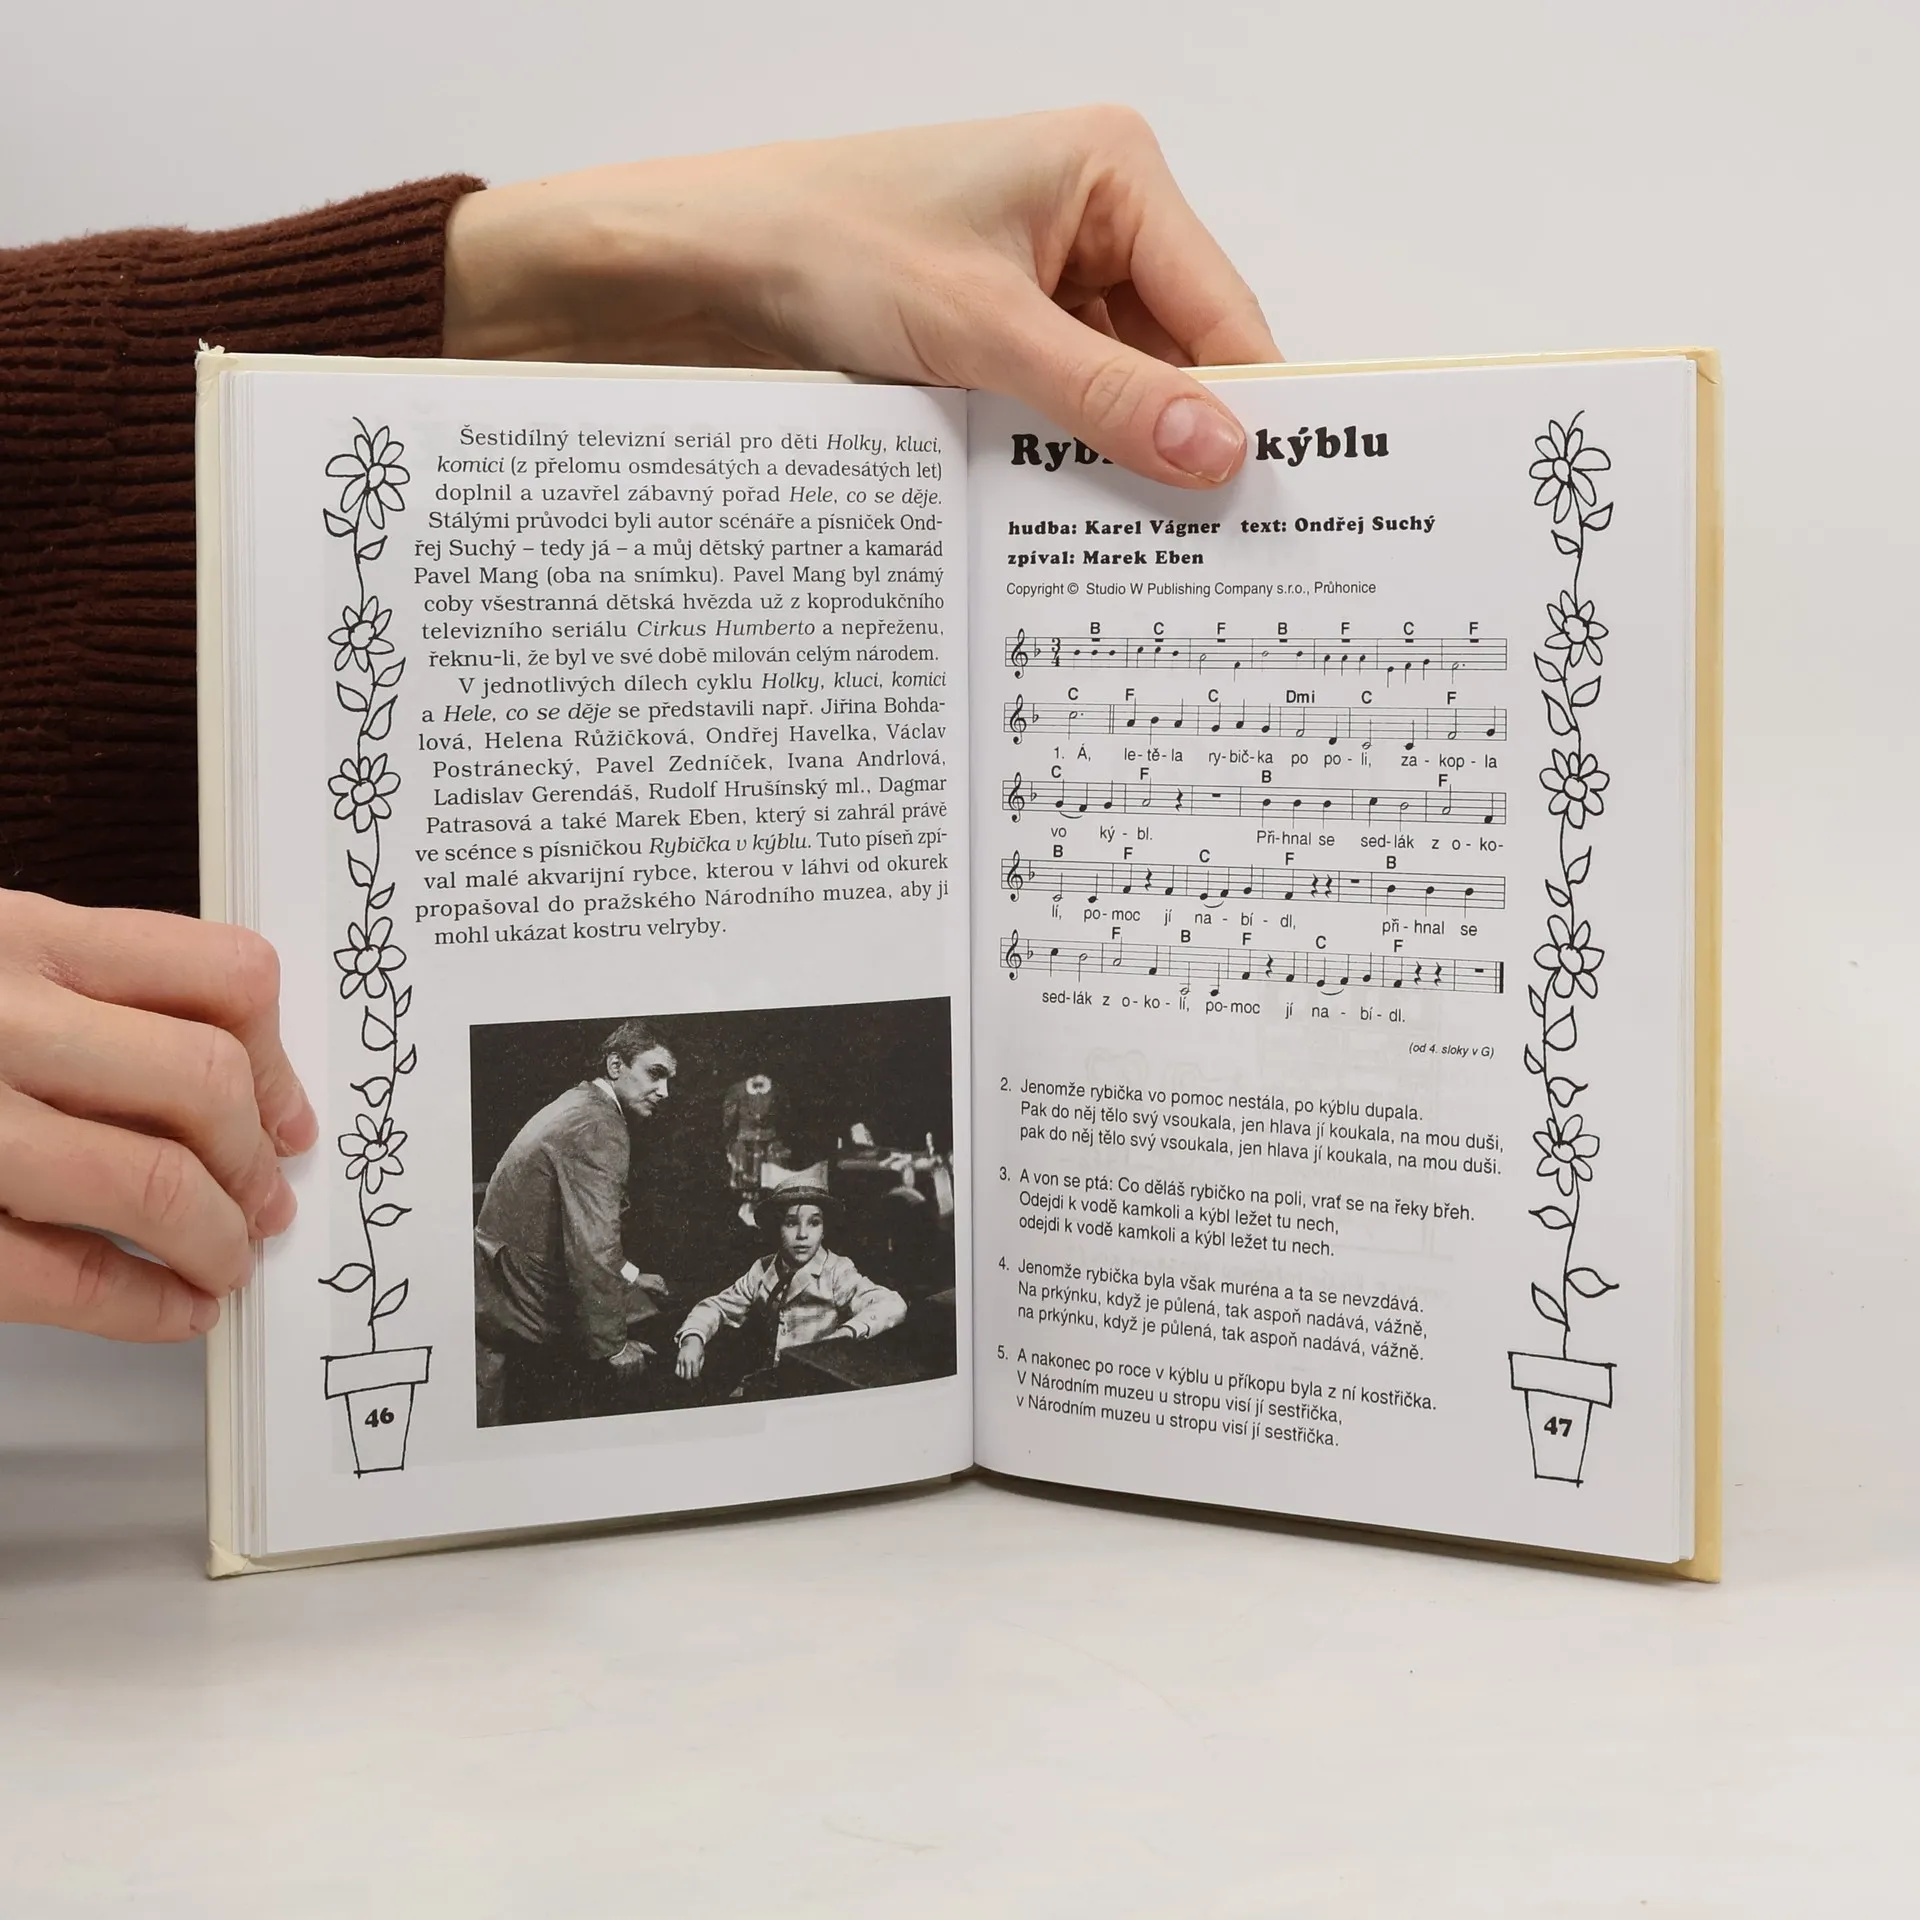 Šestidílný televizní seriál pro děti Holky, kluci,
komici (z přelomu osmdesátých a devadesátých let)
doplnil a uzavřel zábavný pořad Hele, co se děje.
Stálými průvodci byli autor scénáře a písniček Ond-
řej Suchý – tedy já – a můj dětský partner a kamarád
Pavel Mang (oba na snímku). Pavel Mang byl známý
coby všestranná dětská hvězda už z koprodukčního
televizního seriálu Cirkus Humberto a nepřeženu,
řeknu-li, že byl ve své době milován celým národem.
V jednotlivých dílech cyklu Holky, kluci, komici
a Hele, co se děje se představili např. Jiřina Bohda-
lová, Helena Růžičková, Ondřej Havelka, Václav
Postránecký, Pavel Zedníček, Ivana Andrlová,
Ladislav Gerendáš, Rudolf Hrušínský ml., Dagmar
Patrasová a také Marek Eben, který si zahrál právě
ve scénce s písničkou Rybička v kýblu. Tuto píseň zpí-
val malé akvarijní rybce, kterou v láhvi od okurek
propašoval do pražského Národního muzea, aby ji
mohl ukázat kostru velryby.
46
kýblu
hudba: Karel Vágner text: Ondřej Suchý
zpíval: Marek Eben
Copyright © Studio W Publishing Company s.r.o., Průhonice
B C F B F C F
3
4
C F C Dmi C F
1. Á, le-tě-la ry-bič-ka po po-li, za-kop-la
C F B F
vo ký-bl. Při-hnal se sed-lák z o-ko-
B F C F B
lí, po-moc jí na-bí-dl, při-hnal se
F B F C F
sed-lák z o-ko-lí, po-moc jí na-bí-dl.
(od 4. sloky v G)
2. Jenomže rybička vo pomoc nestála, po kýblu dupala.
Pak do něj tělo svý vsoukala, jen hlava jí koukala, na mou duši,
pak do něj tělo svý vsoukala, jen hlava jí koukala, na mou duši.
3. A von se ptá: Co děláš rybičko na poli, vrať se na řeky břeh.
Odejdi k vodě kamkoli a kýbl ležet tu nech,
odejdi k vodě kamkoli a kýbl ležet tu nech.
4. Jenomže rybička byla však muréna a ta se nevzdává.
Na prkýnku, když je půlená, tak aspoň nadává, vážně,
na prkýnku, když je půlená, tak aspoň nadává, vážně.
5. A nakonec po roce v kýblu u příkopu byla z ní kostřička.
V Národním muzeu u stropu visí jí sestřička,
v Národním muzeu u stropu visí jí sestřička.
47